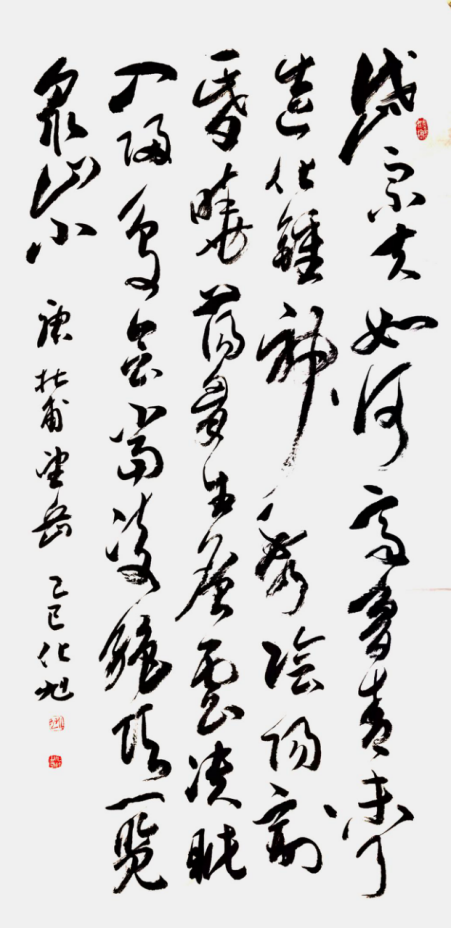 岱宗夫如何齊魯青未了
造化鍾神秀陰陽割
昏曉蕩胸生層雲决眦
入歸鳥會當凌絶頂一覽
衆山小 唐杜甫望岳 乙巳化旭